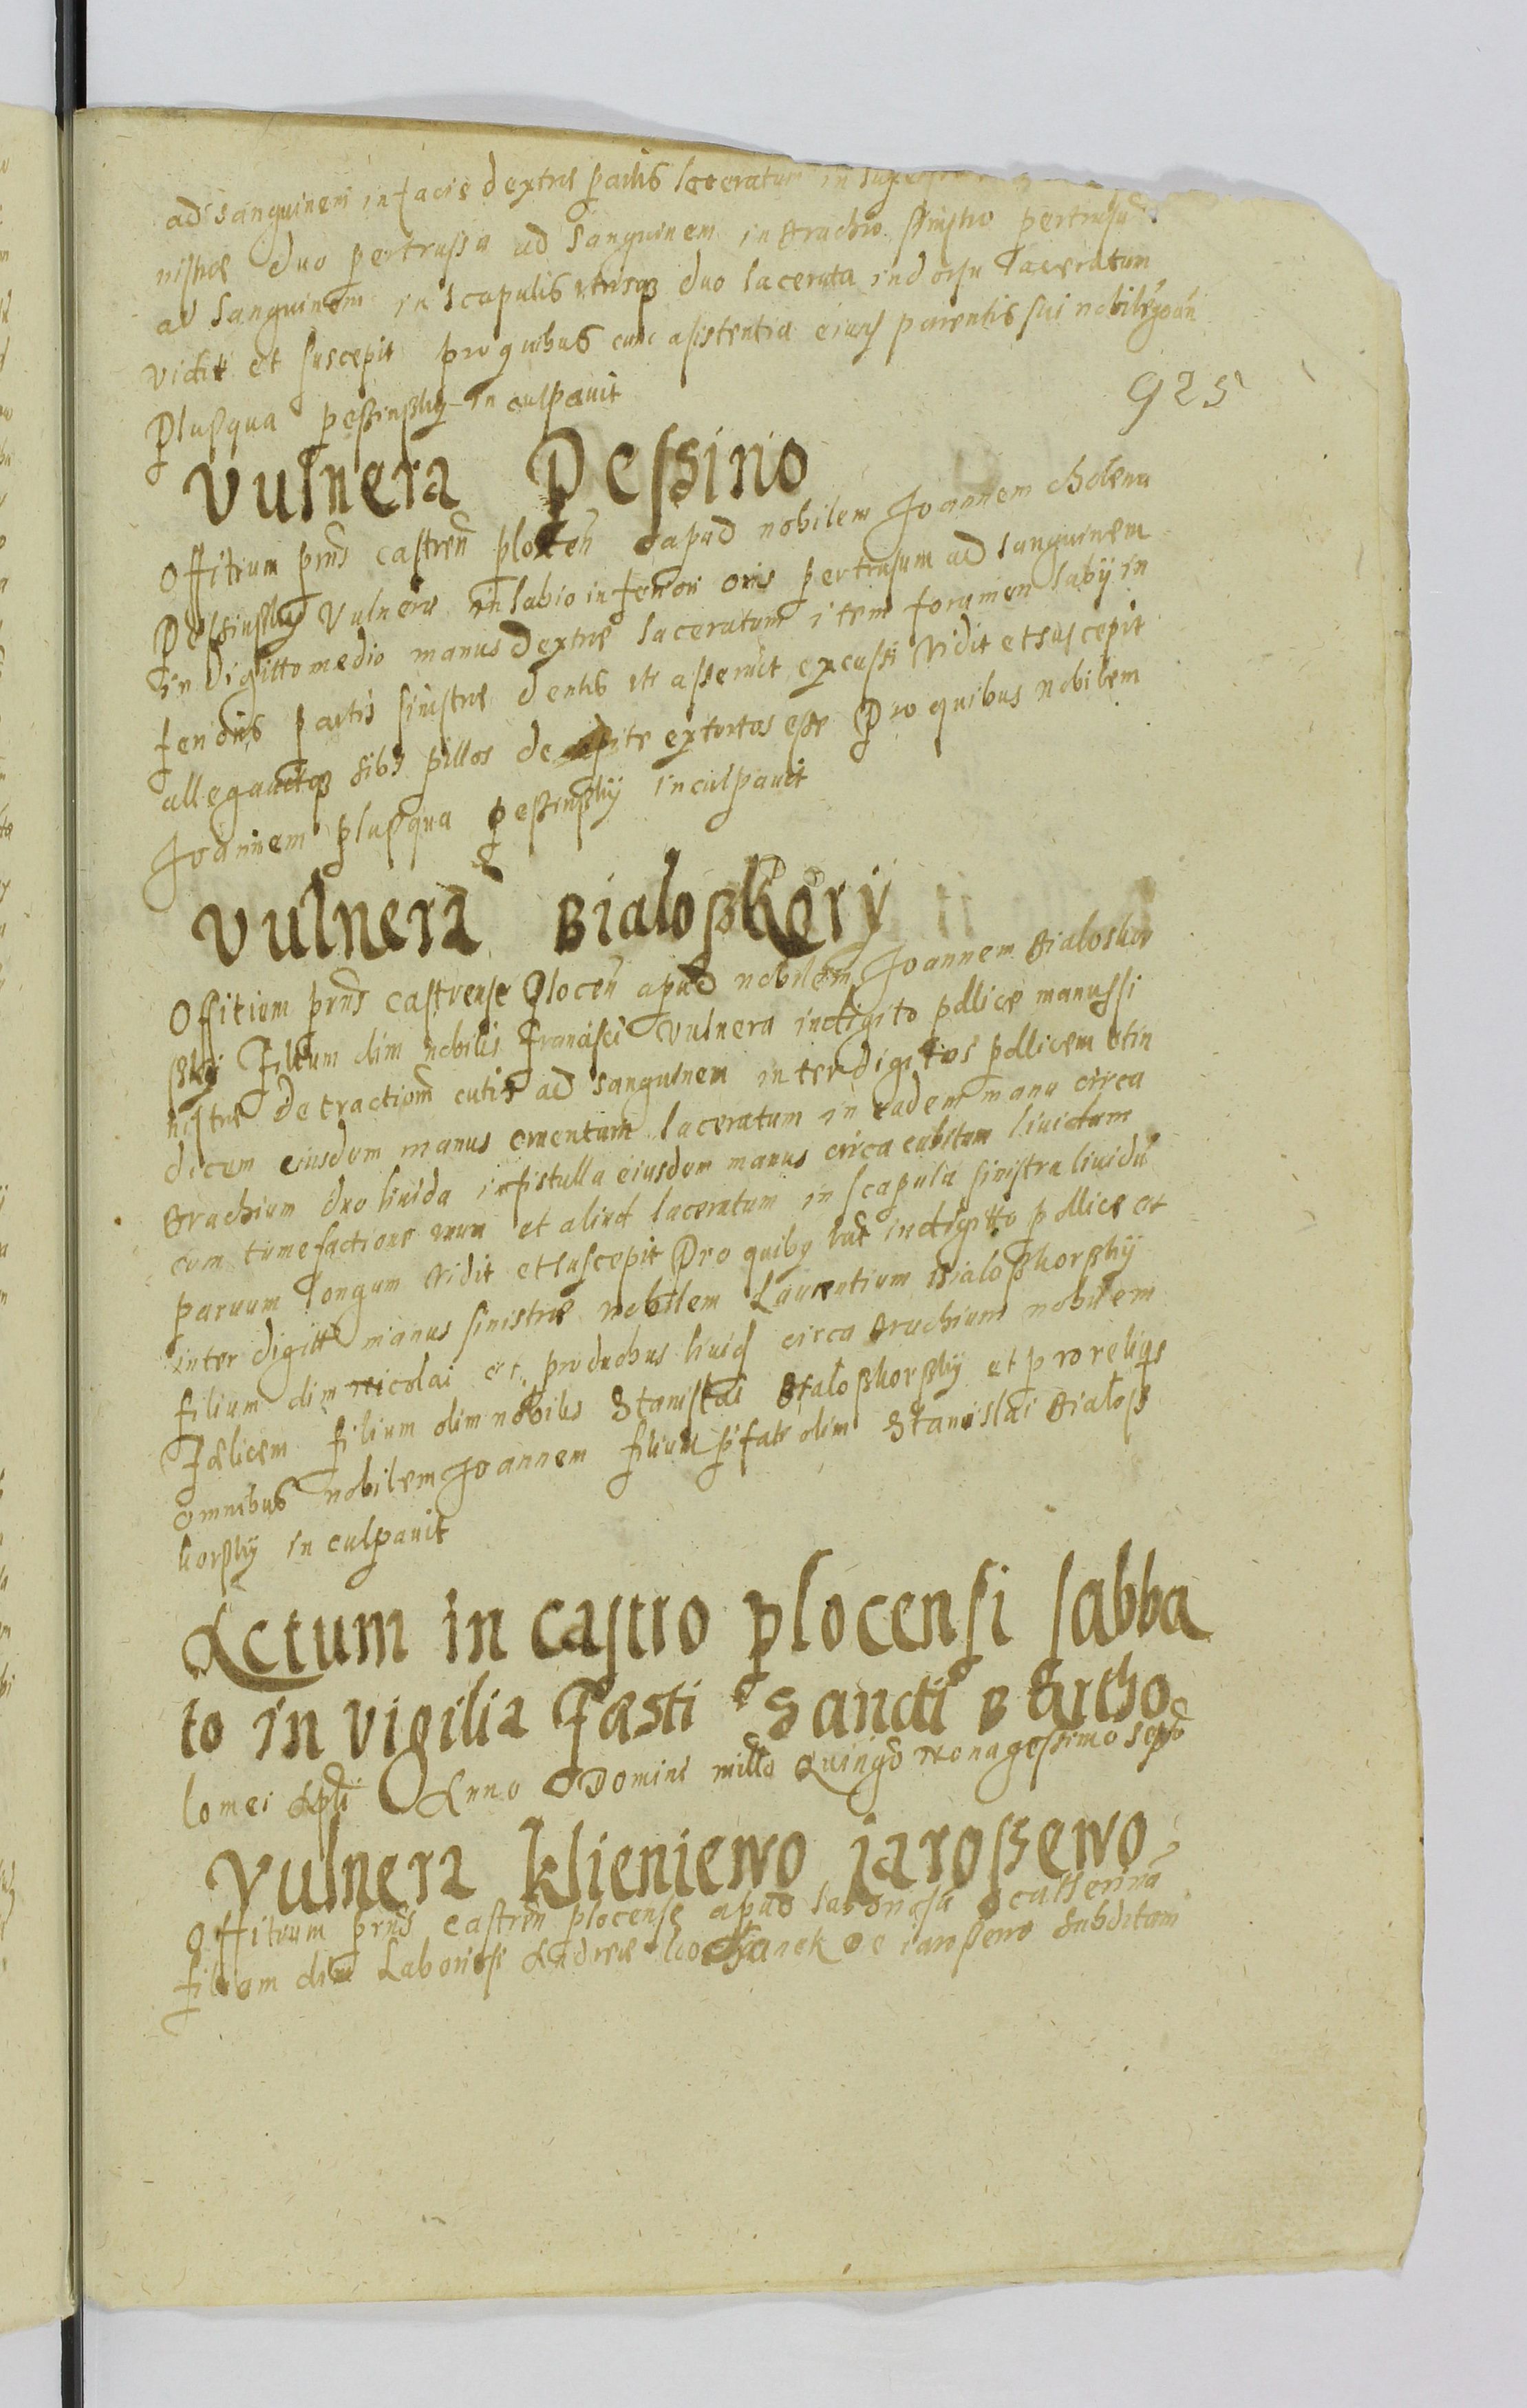 ad sanguinem in facie dextre partis laceratum in
nistre duo pertrussa ad sanguinem in brachio sinistro pertrusu
ad sanguinem in scapulis utrisqz duo lacerata in dorsu laceratum
vidit et suscepit pro quibus cum asistentia eiusq parentis sui nobile Joan
Plusqua Pessinsky inculpavit
925
Vulnera Pessino
Offitium prns castren plocen apud nobilem Joannem
Pessinsky Vulnera in labio inferiori oris pertrusum ad sanguinem
in digitto medio manus dextre laceratum item foramen labij in
ferioris partis sinistre dentis ut asseruit excussi vidit et suscepit
allegavitqz sibi pillos de capite extortos esse Pro quibus nobilem
Joannem plusqua Pessinskij inculpavit
Vulnera Bialoskory
Offitium prns castrense Plocen apud nobilem Joannem Bialoskor
sky Filium olim nobilis Francisci Vulnera in digito pollice manus si
nistre detractiom cutis ad sanguinem inter digitos pollicem et in
dicem eiusdem manus cruentum laceratum in eadem manu circa
Brachium duo livida in fistulla eiusdem manus circa cubitum lividum
cum tumefactione unum et aliud laceratum in scapula sinistra lividu
parvum longum vidit et suscepit Pro quibq in digitto pollice et
inter digitt manus sinistre nobilem Laurentium Bialoskorskij
filium olim Nicolai et pro duobus livid circa Brachium nobilem
Fœlicem filium olim nobilis Stanislai Bialoskorsky et pro reliqs
omnibus nobilem Joannem filium pfati olim Stanislai Bialos
korsky inculpavit
Actum in castro plocensi sabba
to in vigilia Fæsti Sancti Bartho
lomei Apli Anno Domini millo Quingo Nonagessimo
Vulnera klieniewo iarossewo
Offitium prns castren plocense apud laboriosa catterina
filiam olim Laboriosi Andree de iarossewo subditam